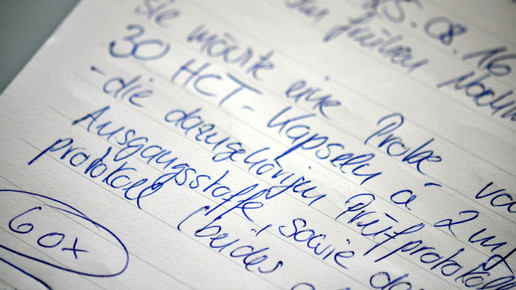 25.08.16
im frühen
Sie möchte eine Probe von
30 HCT-Kapseln à 2 mg
- die dazugehörigen Prüfprotokolle
Ausgangsstoffe, sowie das
protokoll (beides
60x